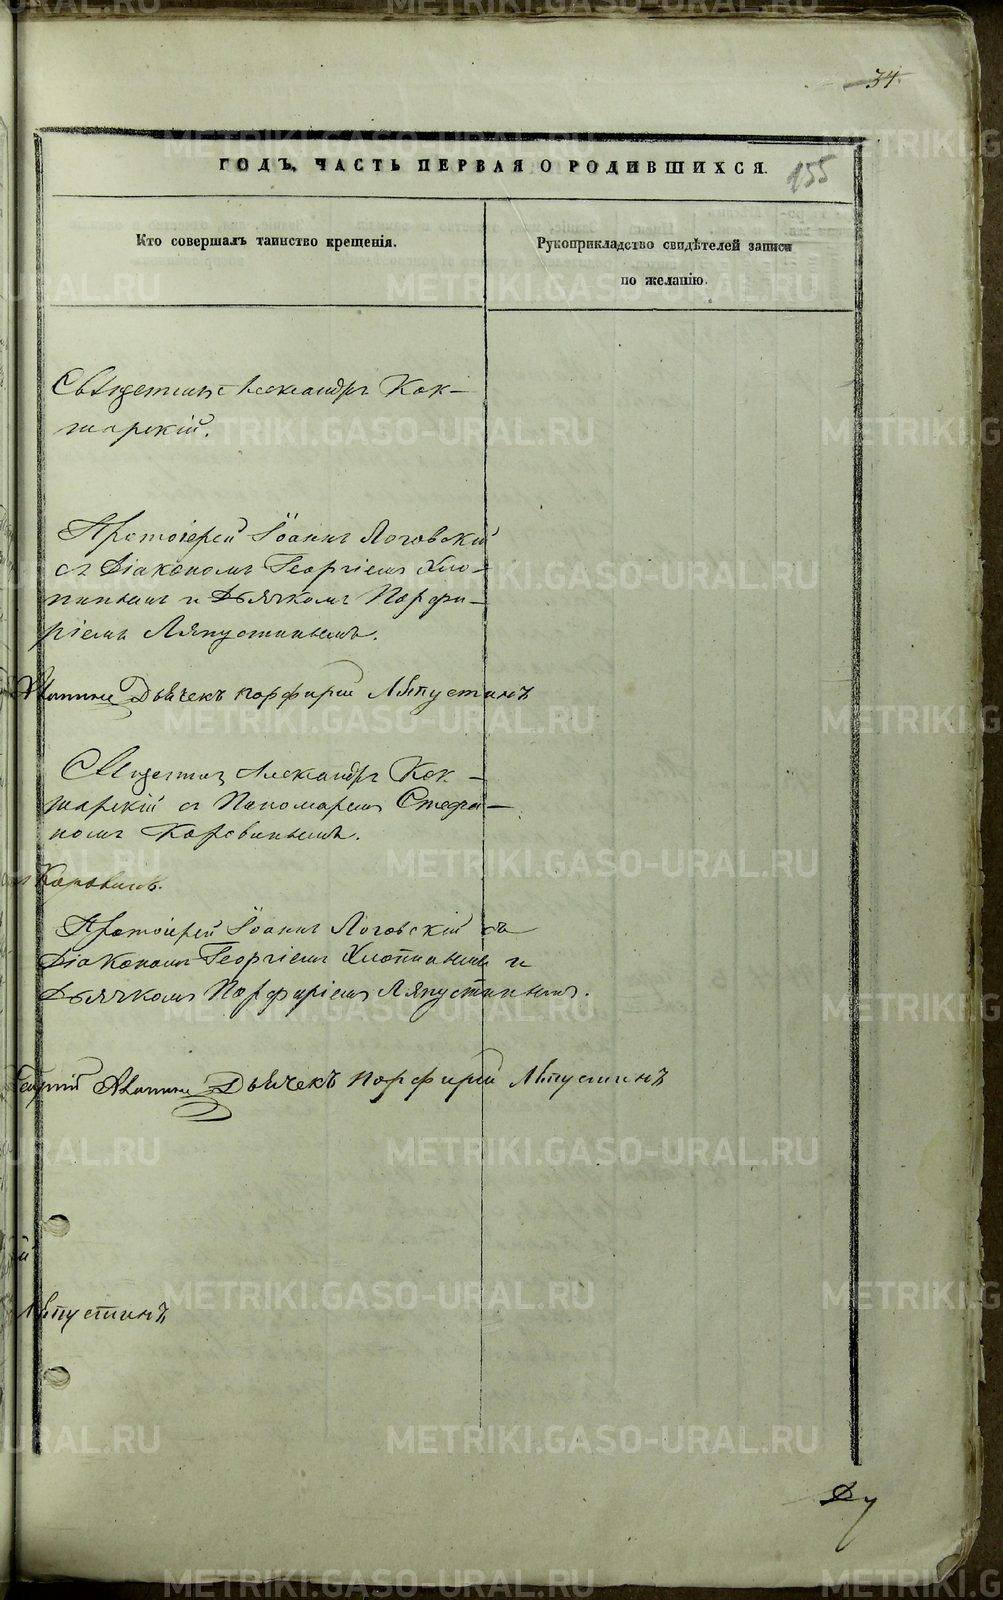 34.
ГОДЪ, ЧАСТЬ ПЕРВАЯ О РОДИВШИХСЯ.
155
Кто совершалъ таинство крещенія.
Рукоприкладство свидѣтелей записи
по желанію.
Священникъ Александръ Кок-
шарскій.
Протоіерей Іоаннъ Логовскій
съ Діакономъ Георгіемъ Хло-
пинымъ и Дьячкомъ Порфи-
ріемъ Ляпустинымъ.
Дьячекъ Порфирій Ляпустинъ
Священник Александръ Кок-
шарскій съ Пономаремъ Стефа-
номъ Коровинымъ.
Коровинъ.
Протоіерей Іоаннъ Логовскій съ
Діакономъ Георгіемъ Хлопинымъ и
Дьячкомъ Порфиріемъ Ляпустинымъ.
Георгій Хлопинъ Дьячекъ Порфирій Ляпустинъ
й
Ляпустинъ
METRIKI.GASO-URAL.RU